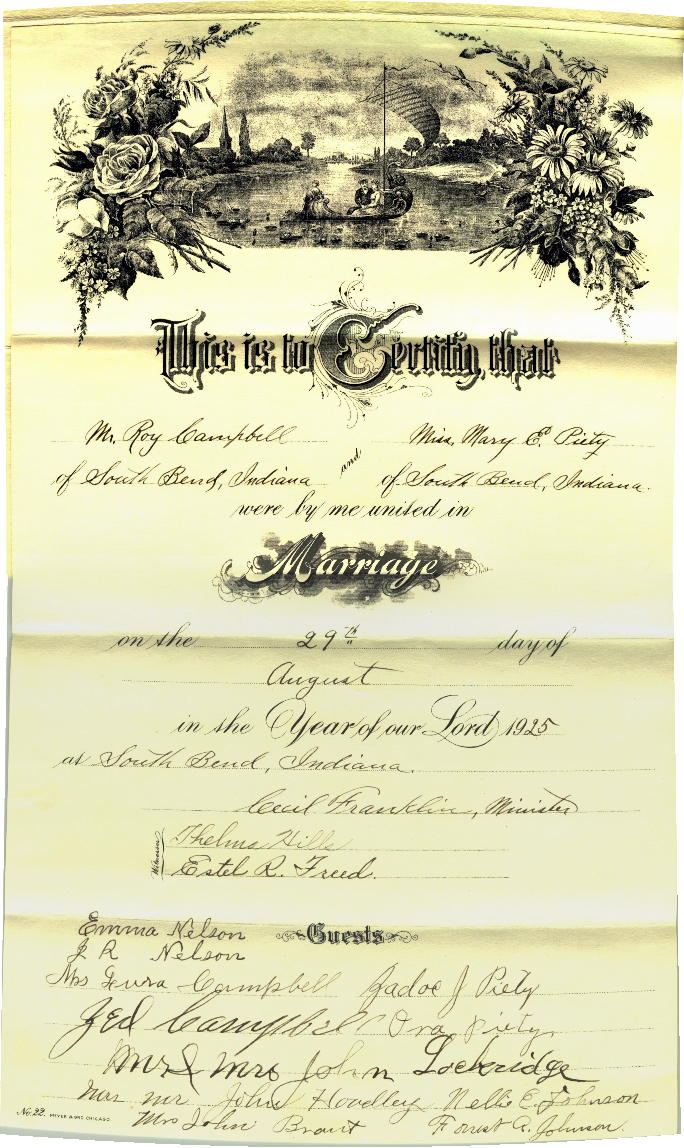 This is to Certify, that
Mr. Roy Campbell and Miss. Mary E. Piety
of South Bend, Indiana of South Bend, Indiana.
were by me united in
Marriage
on the 29th day of
August
in the Year of our Lord 1925
at South Bend, Indiana.
Cecil Franklin, Minister
Witnesses
Thelma Hills
Estel R. Freed.
Guests
Emma Nelson
J R Nelson
Mrs Campbell J Piety
Jed Campbell Ora Piety
Mr & Mrs John Lockridge
Mrs Mr John Hoodley Nellie E. Johnson
Mrs John Brant Forrest G. Johnson.
No. 22. MEYER & BRO. CHICAGO.